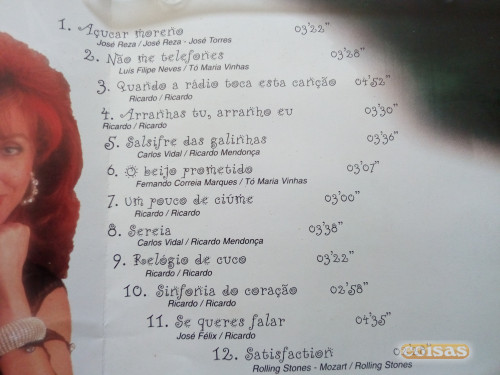 1. Açucar moreno 03'22"
José Reza / José Reza - José Torres
2. Não me telefones 03'28"
Luis Filipe Neves / Tó Maria Vinhas
3. Quando a rádio toca esta canção 04'52"
Ricardo / Ricardo
4. Arranhas tu, arranho eu 03'30"
Ricardo / Ricardo
5. Salsifre das galinhas 03'36"
Carlos Vidal / Ricardo Mendonça
6. O beijo prometido 03'07"
Fernando Correia Marques / Tó Maria Vinhas
7. Um pouco de ciúme 03'00"
Ricardo / Ricardo
8. Sereia 03'38"
Carlos Vidal / Ricardo Mendonça
9. Relógio de cuco 03'22"
Ricardo / Ricardo
10. Sinfonia do coração 02'58"
Ricardo / Ricardo
11. Se queres falar 04'35"
José Félix / Ricardo
12. Satisfaction
Rolling Stones - Mozart / Rolling Stones
coisas